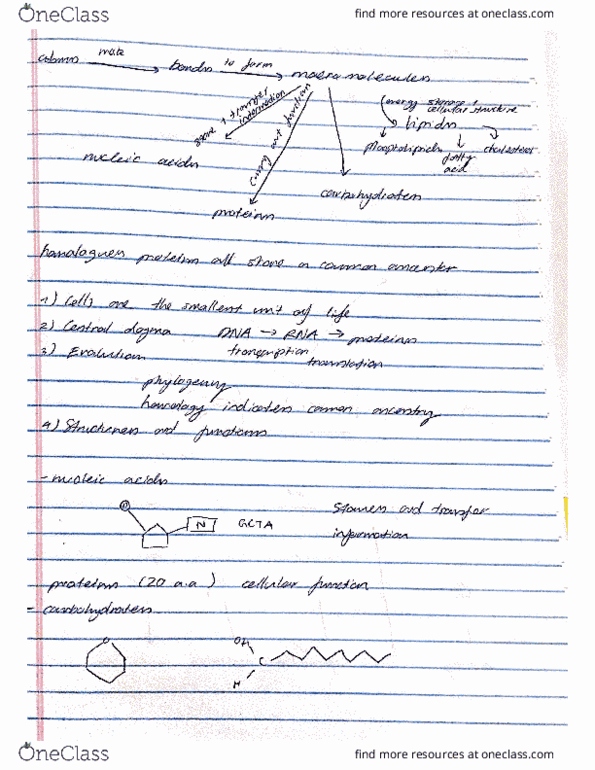 OneClass
find more resources at oneclass.com
make
bonds to form macromolecules
store & transfer information
carrying out function
energy storage &
cellular structure
lipids
phospholipids
fatty acid
cholesterol
nucleic acids
carbohydrates
proteins
homologues proteins all share a common ancestor
1) Cells are the smallest unit of life
2) Central dogma DNA → RNA → proteins
transcription
translation
3) Evolution
phylogeny
homology indicates common ancestry
4) Structures and functions
- nucleic acids
P
N GCTA
and transfer
information
proteins (20 a.a) cellular function
- carbohydrates
O
OH
C
H
OneClass
find more resources at oneclass.com